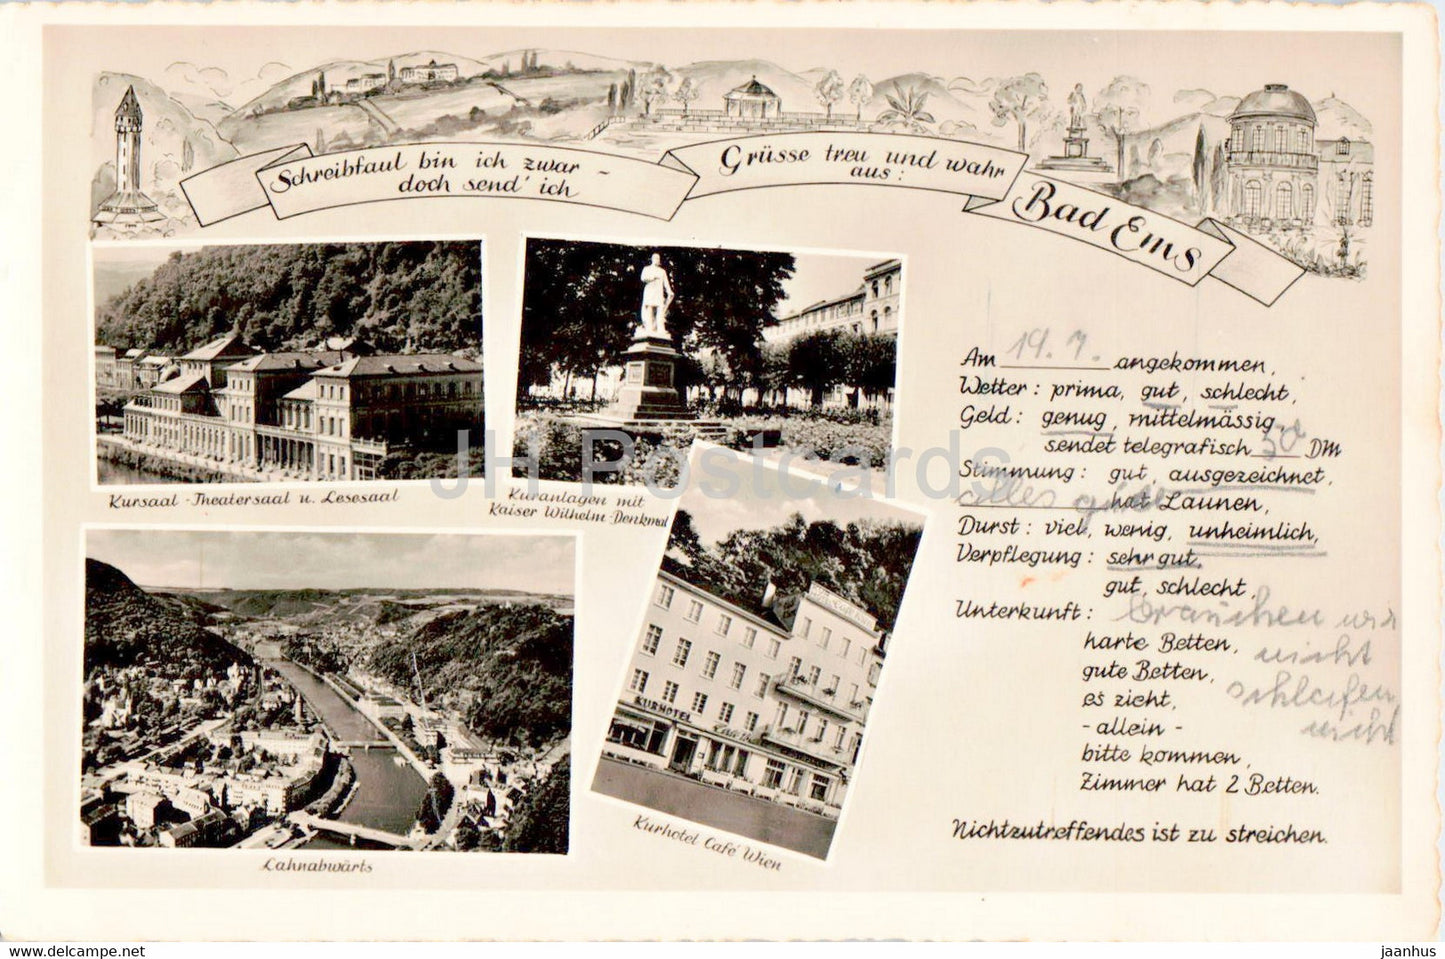 Schreibfaul bin ich zwar -
doch send' ich
Grüsse treu und wahr
aus:
Bad Ems
Kursaal - Theatersaal u. Lesesaal
Kuranlagen mit
Kaiser Wilhelm-Denkmal
KURHOTEL
Lahnabwärts
Kurhotel Café Wien
Am 19. 7. angekommen,
Wetter: prima, gut, schlecht,
Geld: genug, mittelmässig
sendet telegrafisch 50 DM
Stimmung: gut, ausgezeichnet,
alles hat Launen,
Durst: viel, wenig, unheimlich,
Verpflegung: sehr gut,
gut, schlecht,
Unterkunft: brauchen wir
harte Betten, nicht
gute Betten, schlafen
es zieht, nicht
- allein -
bitte kommen,
Zimmer hat 2 Betten.
Nichtzutreffendes ist zu streichen.
JH Postcards
https://www.jhpostcards.com
jaanhus